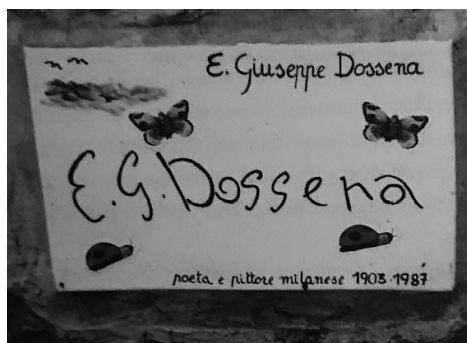 E. Giuseppe Dossena
E.G.Dossena
poeta e pittore milanese 1903-1987